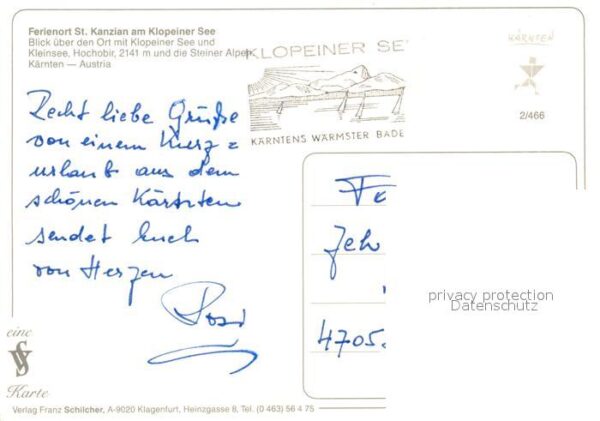 Ferienort St. Kanzian am Klopeiner See
Blick über den Ort mit Klopeiner See und
Kleinsee, Hochobir, 2141 m und die Steiner Alpen
Kärnten — Austria
KLOPEINER SE
KÄRNTENS WÄRMSTER BADE
KÄRNTEN
2/466
Recht liebe Grüße
von einem Kurz=
urlaub aus dem
schönen Kärnten
sendet Euch
von Herzen
Rosi
4705.
privacy protection
Datenschutz
eine
VS
Karte
Verlag Franz Schilcher, A-9020 Klagenfurt, Heinzgasse 8, Tel. (0 463) 56 4 75